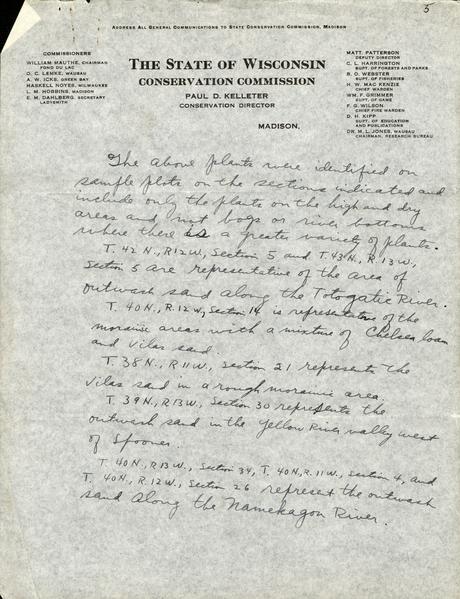 5
ADDRESS ALL GENERAL COMMUNICATIONS TO STATE CONSERVATION COMMISSION, MADISON
COMMISSIONERS
WILLIAM MAUTHE, CHAIRMAN
FOND DU LAC
O. C. LEMKE, WAUSAU
A. W. ICKS, GREEN BAY
HASKELL NOYES, MILWAUKEE
L. M. HOBBINS, MADISON
E. M. DAHLBERG, SECRETARY
LADYSMITH
THE STATE OF WISCONSIN
CONSERVATION COMMISSION
PAUL D. KELLETER
CONSERVATION DIRECTOR
MADISON,
MATT. PATTERSON
DEPUTY DIRECTOR
C. L. HARRINGTON
SUPT. OF FORESTS AND PARKS
B. O. WEBSTER
SUPT. OF FISHERIES
H. W. MAC KENZIE
CHIEF WARDEN
WM. F. GRIMMER
SUPT. OF GAME
F. G. WILSON
CHIEF FIRE WARDEN
D. H. KIPP
SUPT. OF EDUCATION
AND PUBLICATIONS
DR. M. L. JONES, WAUSAU
CHAIRMAN, RESEARCH BUREAU
The above plants were identified on
sample plots on the sections indicated and
include only the plants on the high and dry
areas and not bogs or river bottoms
where there is a greater variety of plants.
T. 42 N., R12W., Section 5 and T. 43 N., R. 13W.,
Section 5 are representative of the area of
outwash sand along the Totogatic River.
T. 40N., R.12W., Section 14 is representative of the
moraine areas with a mixture of Chelsea loam
and Vilas sand.
T. 38 N., R11W., Section 21 represents the
Vilas sand in a rough moraine area.
T. 39 N., R13W., Section 30 represents the
outwash sand in the Yellow River valley west
of Spooner.
T. 40N., R13W., Section 34, T. 40N., R.11W., Section 4, and
T. 40N., R.12W., Section 26 represent the outwash
sand along the Namekagon River.